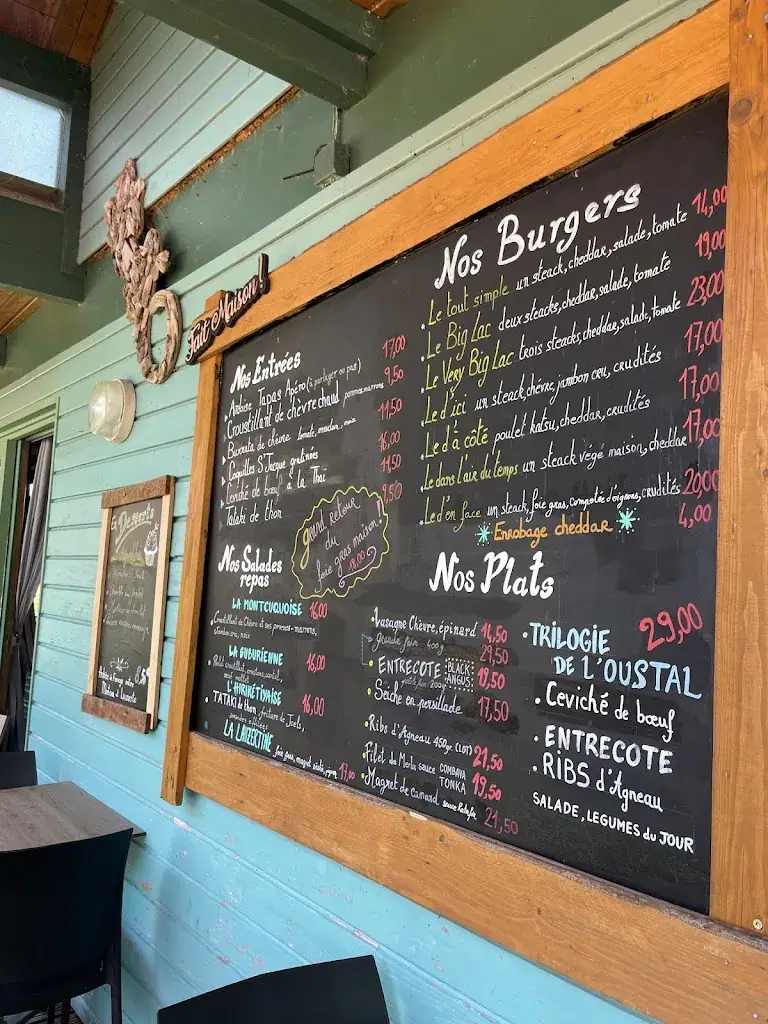 Fait Maison!
Nos Entrées
Ardoise Tapas Apéro (à partager ou pas) 17,00
Croustillant de chèvre chaud pommes-marrons 9,50
Burrata de chèvre tomate, noix 11,50
Coquilles St Jacque gratinées 16,00
de bœuf à la Thaï 11,50
Tataki de thon 9,50
grand retour
du
foie gras maison!
18.00
Nos Salades
repas
LA MONTCUQUOISE 16,00
Croustillant de Chèvre et ses pommes-marrons,
jambon cru, noix
16,00
16,00
TATAKI de thon, friture de
LA LAUZERTINE foie gras, magret séché, 17,00
Nos Burgers
Le tout simple un steack, cheddar, salade, tomate 14,00
Le Big Lac deux steacks, cheddar, salade, tomate 19,00
Le Very Big Lac trois steacks, cheddar, salade, tomate 23,00
Le d'ici un steack, chèvre, jambon cru, crudités 17,00
Le d'à côté poulet katsu, cheddar, crudités 17,00
Le dans l'air du temps un steack végé maison, cheddar 17,00
Le d'en face un steack, foie gras, compotée d'oignons, crudités 20,00
Enrobage cheddar 4,00
Nos Plats
Lasagne Chèvre, épinard 14,50
grande faim 400g 29,50
ENTRECOTE 200g BLACK ANGUS 19,50
Seiche en persillade 17,50
Ribs d'Agneau 450gr. (LOT) 21,50
Filet de Merlu sauce COMBAVA TONKA 19,50
Magret de canard sauce 21,50
TRILOGIE 29,00
DE L'OUSTAL
Ceviché de bœuf
ENTRECOTE
RIBS d'Agneau
SALADE, LEGUMES du JOUR
Desserts
8,5